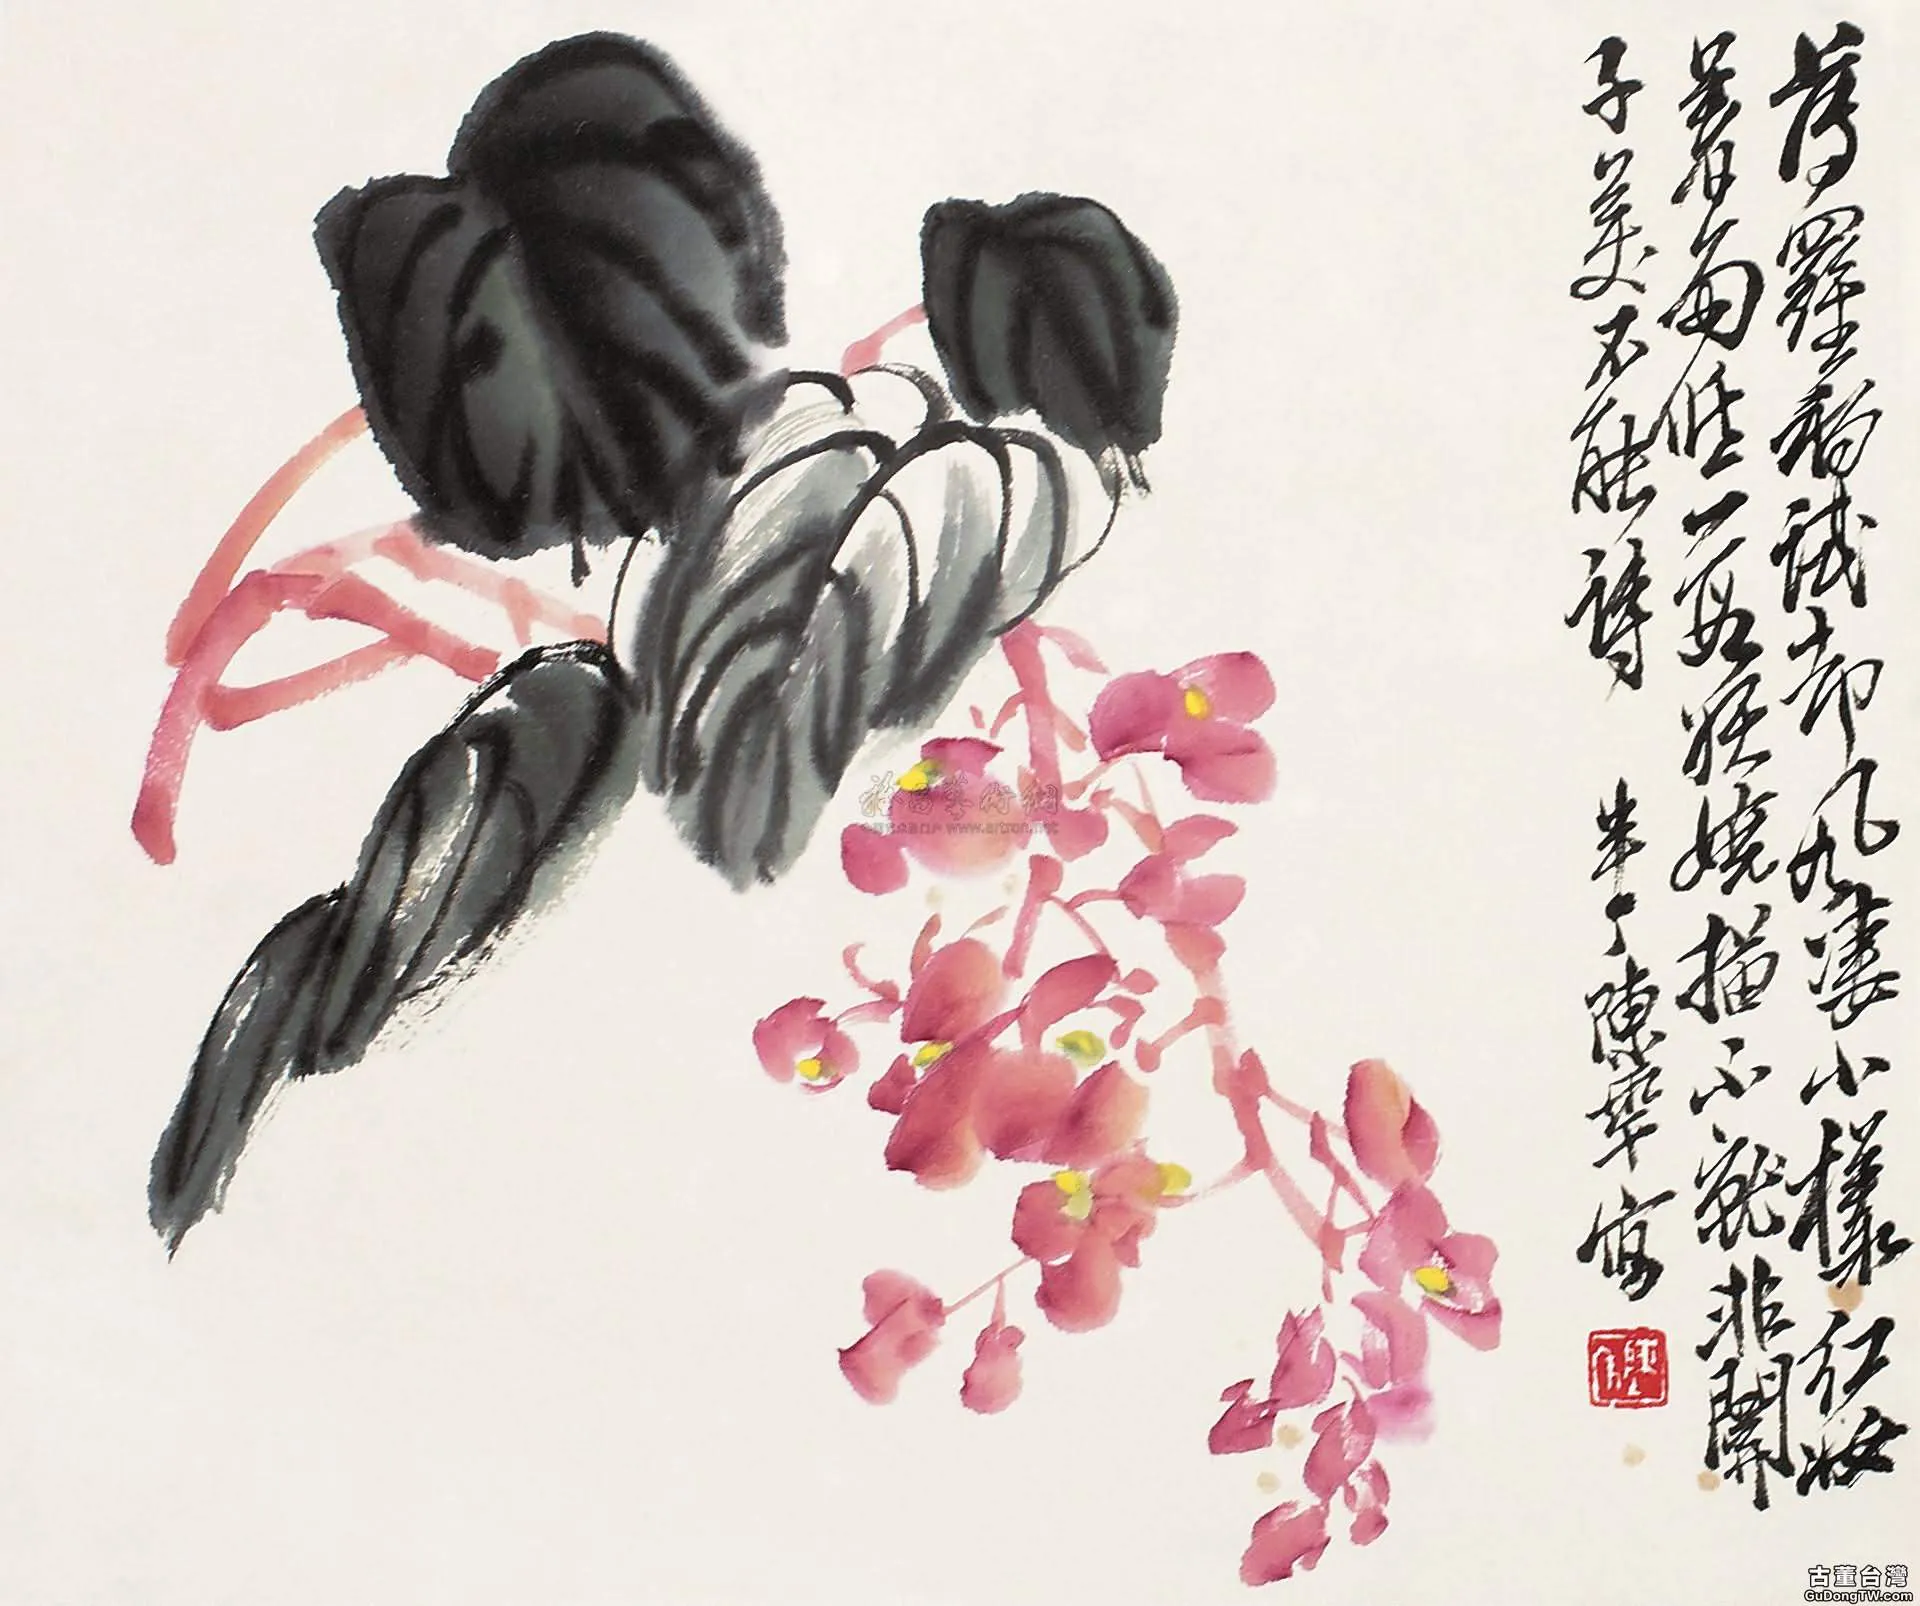 薄羅初試却風凄小樣紅妝
着雨低一段妖嬈描不就非關
子美不能詩 半丁陳年寫
雅昌藝術網
www.artron.net
古董台灣
GuDongTW.com